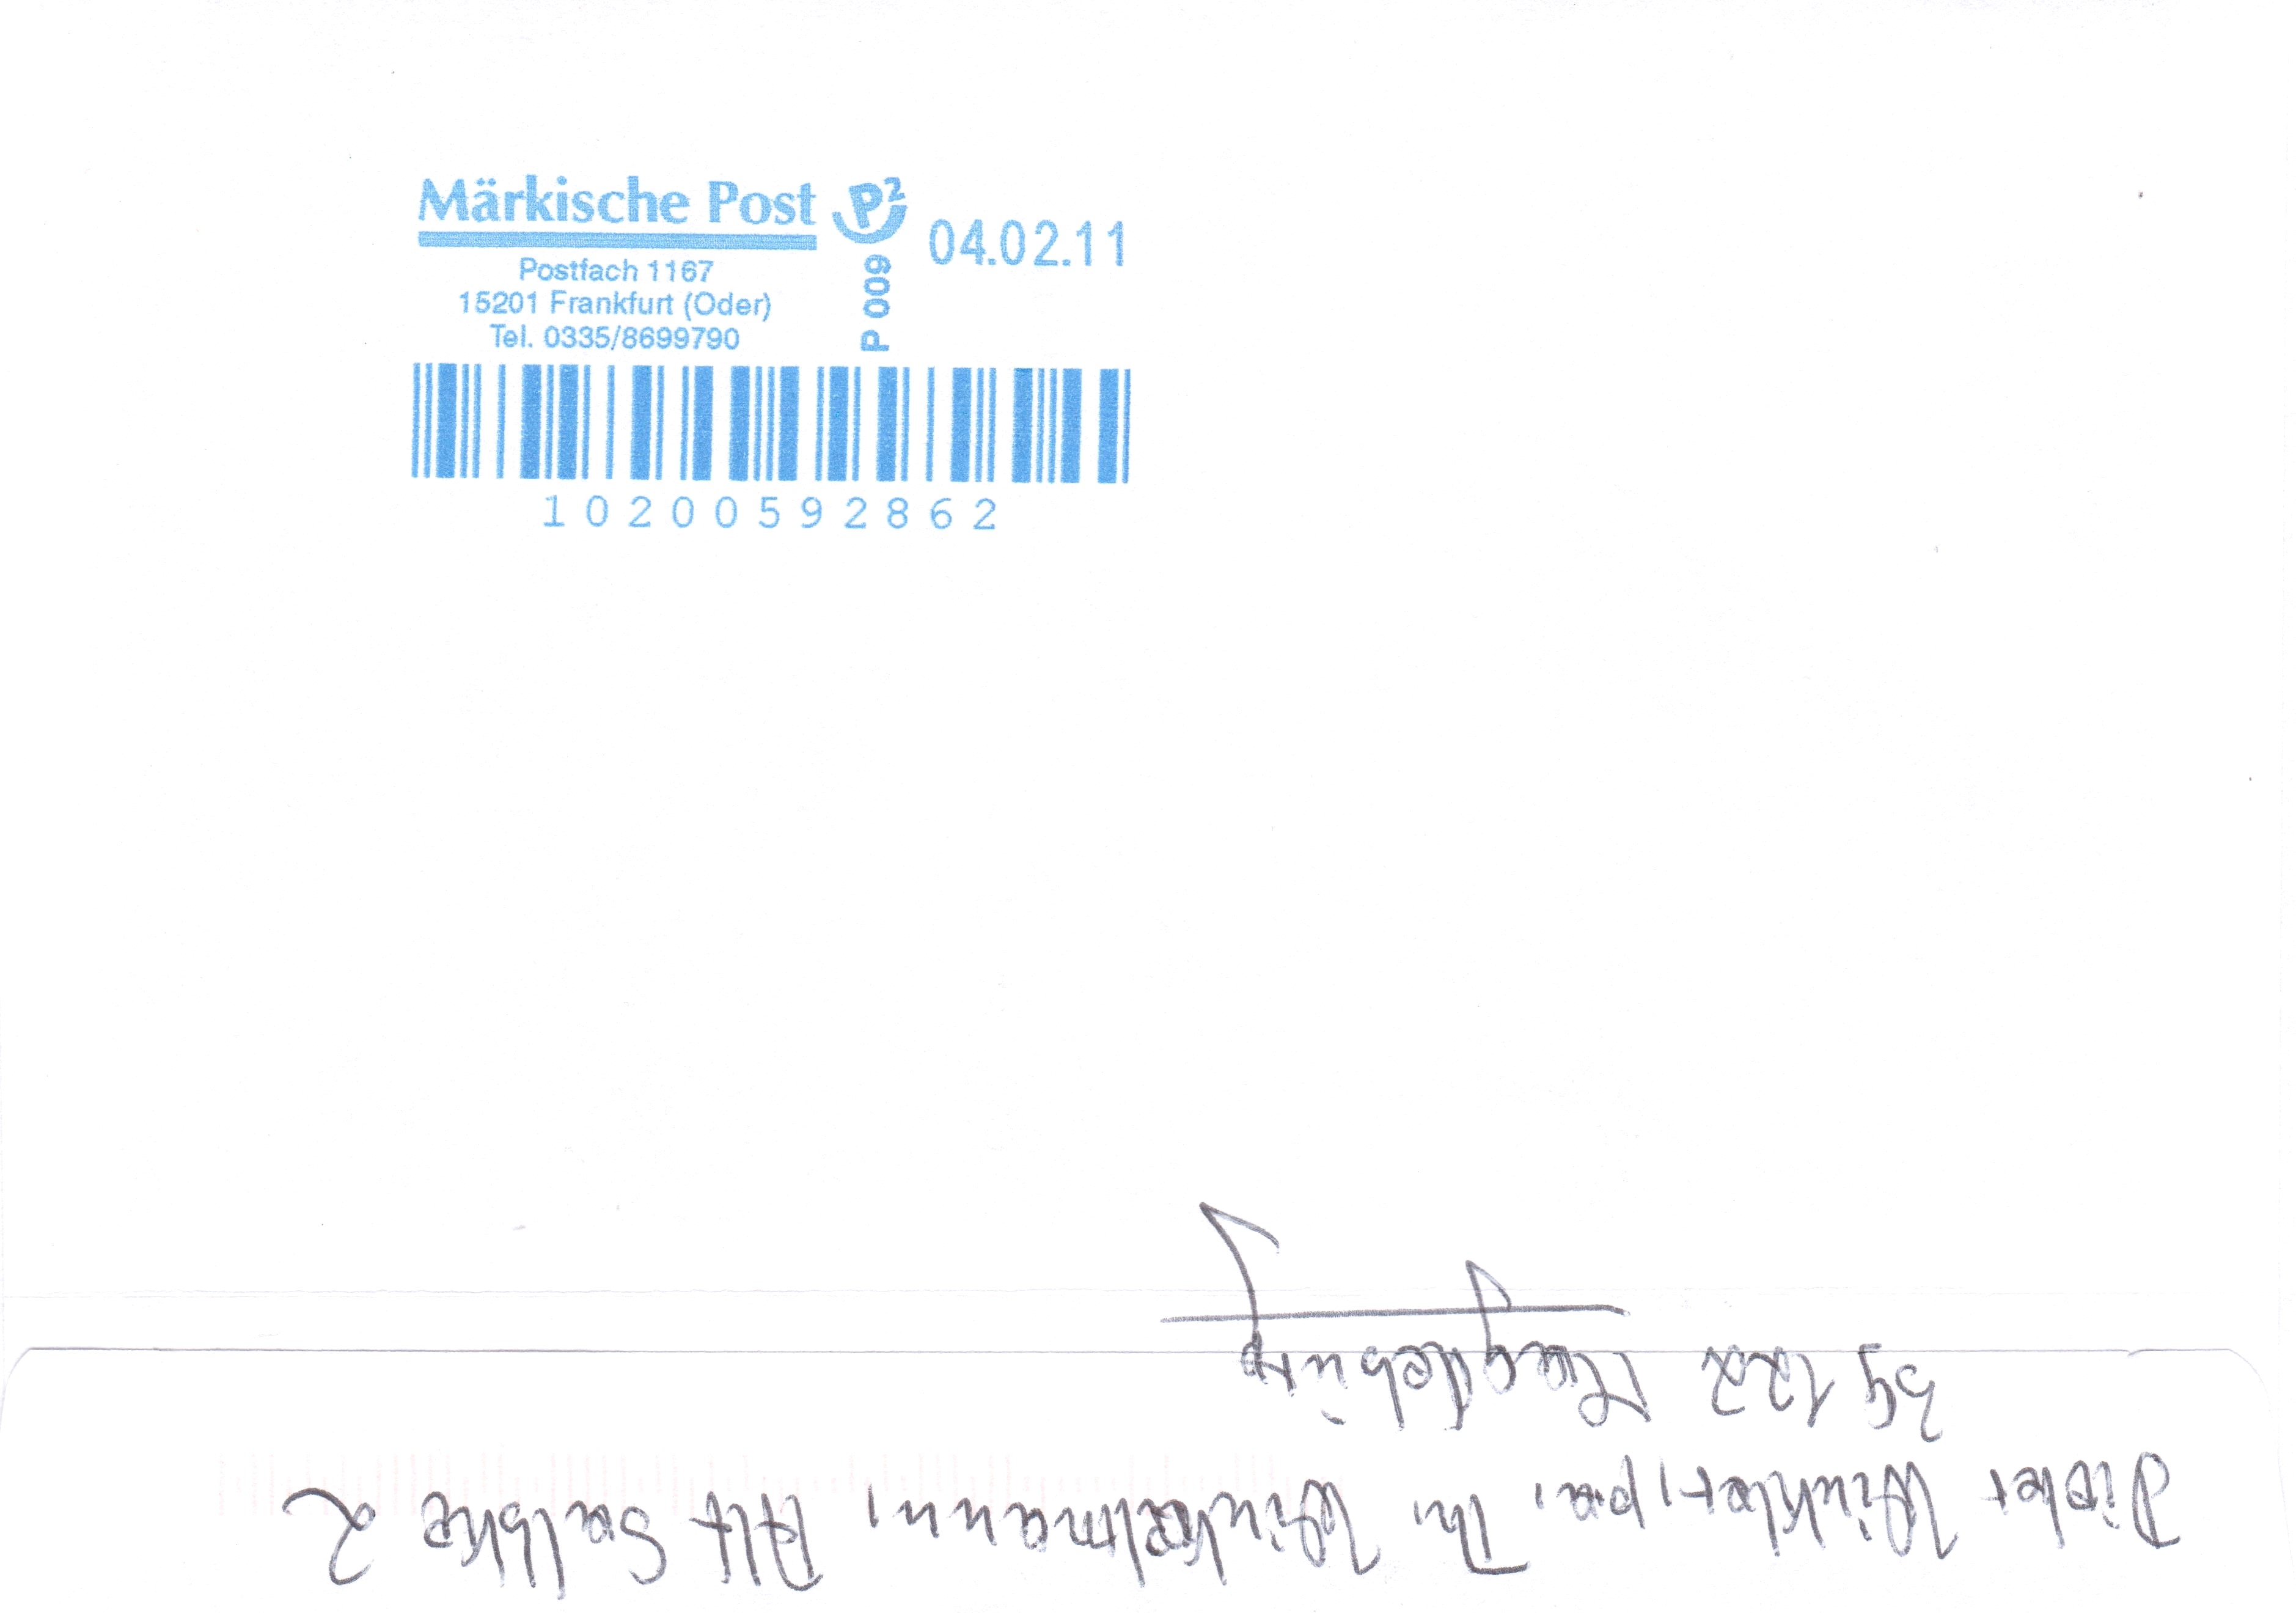 Märkische Post P²
04.02.11
Postfach 1167
15201 Frankfurt (Oder)
Tel. 0335/8699790
P 009
10200592862
Winkler, pa. Th. Winkelmann, Alt Salbke 2
39122 Magdeburg